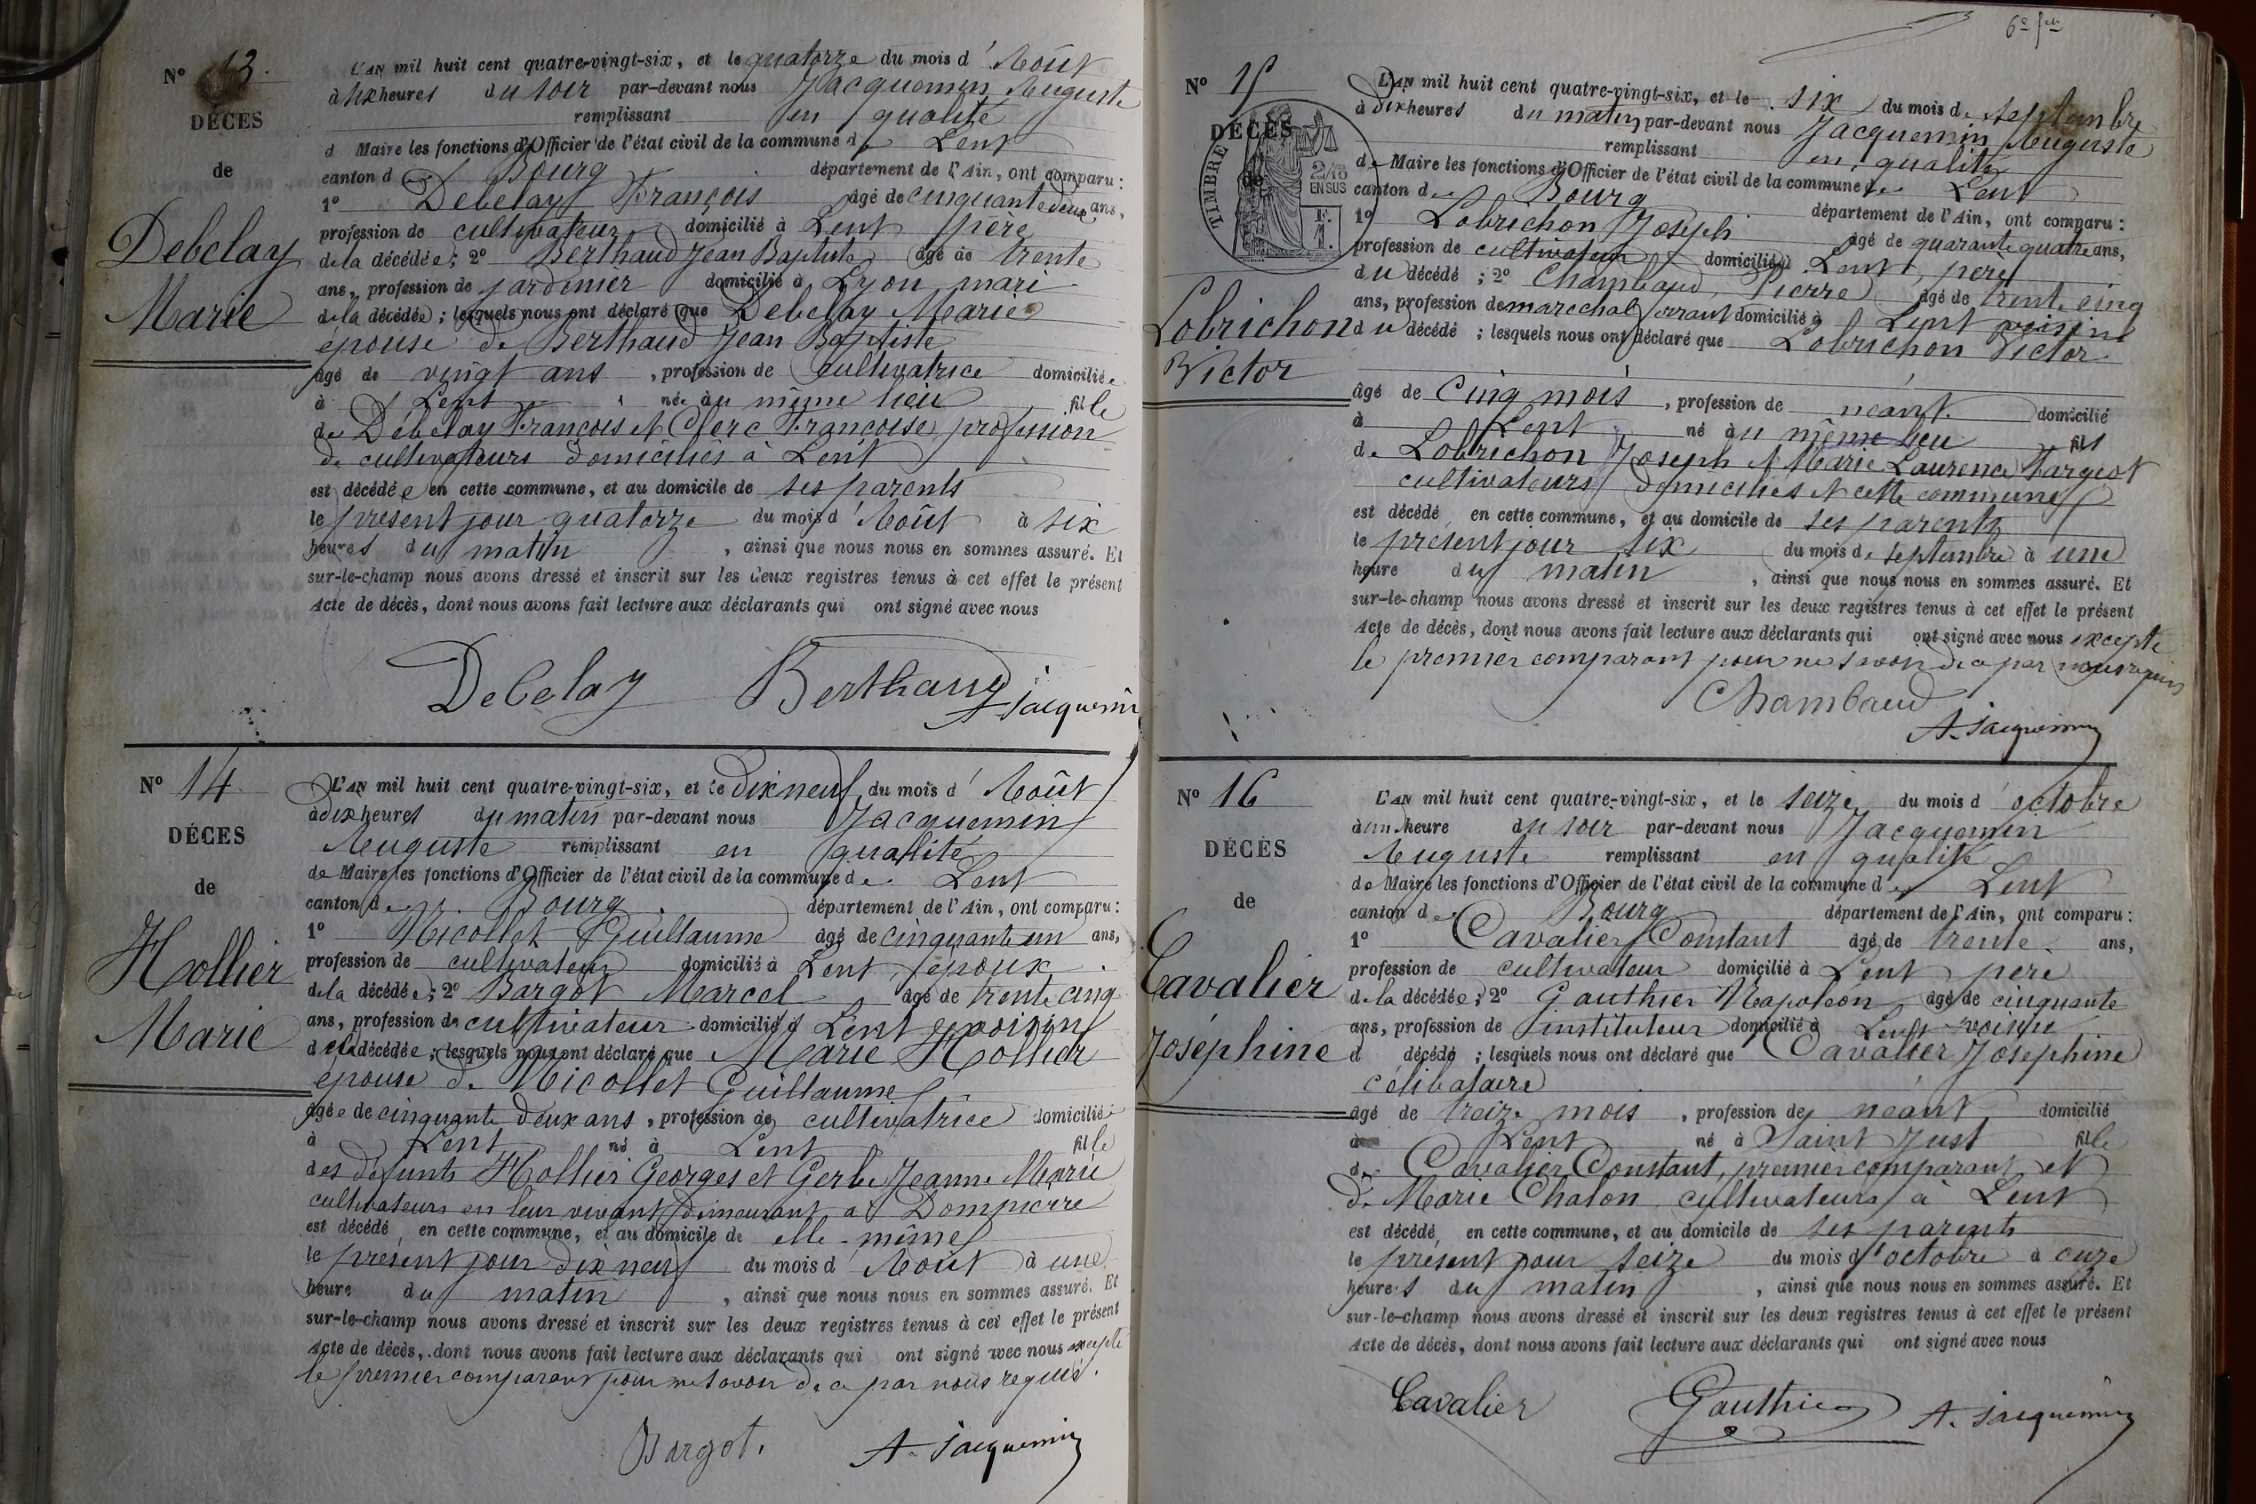 Nº 13.
DÉCES
de
Debelay
Marie
L'AN mil huit cent quatre-vingt-six, et le quatorze du mois d'Août
à six heures du soir par-devant nous Jacquemin Auguste
remplissant en qualité
d Maire les fonctions d'Officier de l'état civil de la commune de Lent
canton de Bourg département de l'Ain, ont comparu :
1º Debelay François âgé de cinquante deux ans,
profession de cultivateur domicilié à Lent père
de la décédée ; 2º Berthaud Jean Baptiste âgé de trente
ans, profession de jardinier domicilié à Lyon mari
de la décédée ; lesquels nous ont déclaré que Debelay Marie
épouse de Berthaud Jean Baptiste
âgé de vingt ans, profession de cultivatrice domiciliée
à Lent née au même lieu fille
de Debelay François et Clerc Françoise profession
de cultivateurs domiciliés à Lent
est décédée en cette commune, et au domicile de ses parents
le présent jour quatorze du mois d'Août à six
heures du matin, ainsi que nous nous en sommes assuré. Et
sur-le-champ nous avons dressé et inscrit sur les deux registres tenus à cet effet le présent
Acte de décès, dont nous avons fait lecture aux déclarants qui ont signé avec nous
Debelay Berthaud A. Jacquemin
Nº 14
DÉCES
de
Hollier
Marie
L'AN mil huit cent quatre-vingt-six, et le dix neuf du mois d'Août
à dix heures du matin par-devant nous Jacquemin
Auguste remplissant en qualité
de Maire les fonctions d'Officier de l'état civil de la commune de Lent
canton de Bourg département de l'Ain, ont comparu :
1º Nicollet Guillaume âgé de cinquante un ans,
profession de cultivateur domicilié à Lent, époux
de la décédée ; 2º Bargot Marcel âgé de trente cinq
ans, profession de cultivateur domicilié à Lent voisin
de la décédée ; lesquels nous ont déclaré que Marie Hollier
épouse de Nicollet Guillaume
âgée de cinquante deux ans, profession de cultivatrice domiciliée
à Lent né à Lent fille
des défunts Hollier Georges et Gerbe Jeanne Marie
cultivateurs en leur vivant demeurant à Dompierre
est décédé en cette commune, et au domicile de elle-même
le présent jour dix neuf du mois d'Août à une
heure du matin, ainsi que nous nous en sommes assuré. Et
sur-le-champ nous avons dressé et inscrit sur les deux registres tenus à cet effet le présent
Acte de décès, dont nous avons fait lecture aux déclarants qui ont signé avec nous excepté
le premier comparant pour ne savoir de ce par nous requis.
Bargot. A. Jacquemin
6e fet
Nº 15
DÉCÈS
de
TIMBRE
2/10
EN SUS
Lobrichon
Victor
L'AN mil huit cent quatre-vingt-six, et le six du mois de septembre
à dix heures du matin par-devant nous Jacquemin Auguste
remplissant en qualité
de Maire les fonctions d'Officier de l'état civil de la commune de Lent
canton de Bourg département de l'Ain, ont comparu :
1º Lobrichon Joseph âgé de quarante quatre ans,
profession de cultivateur domicilié à Lent, père
du décédé ; 2º Chambaud Pierre âgé de trente cinq
ans, profession de marechal ferrant domicilié à Lent voisin
du décédé ; lesquels nous ont déclaré que Lobrichon Victor
âgé de cinq mois, profession de néant domicilié
à Lent né au même lieu fils
de Lobrichon Joseph et Marie Laurence Fargeot
cultivateurs domiciliés et cette commune
est décédé en cette commune, et au domicile de ses parents
le présent jour six du mois de septembre à une
heure du matin, ainsi que nous nous en sommes assuré. Et
sur-le-champ nous avons dressé et inscrit sur les deux registres tenus à cet effet le présent
Acte de décès, dont nous avons fait lecture aux déclarants qui ont signé avec nous excepté
le premier comparant pour ne savoir de ce par nous requis
Chambaud
A. Jacquemin
Nº 16
DÉCÈS
de
Cavalier
Joséphine
L'AN mil huit cent quatre-vingt-six, et le seize du mois d'octobre
à une heure du soir par-devant nous Jacquemin
Auguste remplissant en qualité
de Maire les fonctions d'Officier de l'état civil de la commune de Lent
canton de Bourg département de l'Ain, ont comparu :
1º Cavalier Constant âgé de trente ans,
profession de cultivateur domicilié à Lent père
de la décédée ; 2º Gauthier Napoléon, âgé de cinquante
ans, profession de instituteur domicilié à Lent voisin
d décédé ; lesquels nous ont déclaré que Cavalier Joséphine
célibataire
âgé de treize mois, profession de néant domicilié
à Lent né à Saint Just fille
de Cavalier Constant, premier comparant et
de Marie Chalon cultivateurs à Lent
est décédé en cette commune, et au domicile de ses parents
le présent jour seize du mois d'octobre à onze
heures du matin, ainsi que nous nous en sommes assuré. Et
sur-le-champ nous avons dressé et inscrit sur les deux registres tenus à cet effet le présent
Acte de décès, dont nous avons fait lecture aux déclarants qui ont signé avec nous
Cavalier Gauthier A. Jacquemin